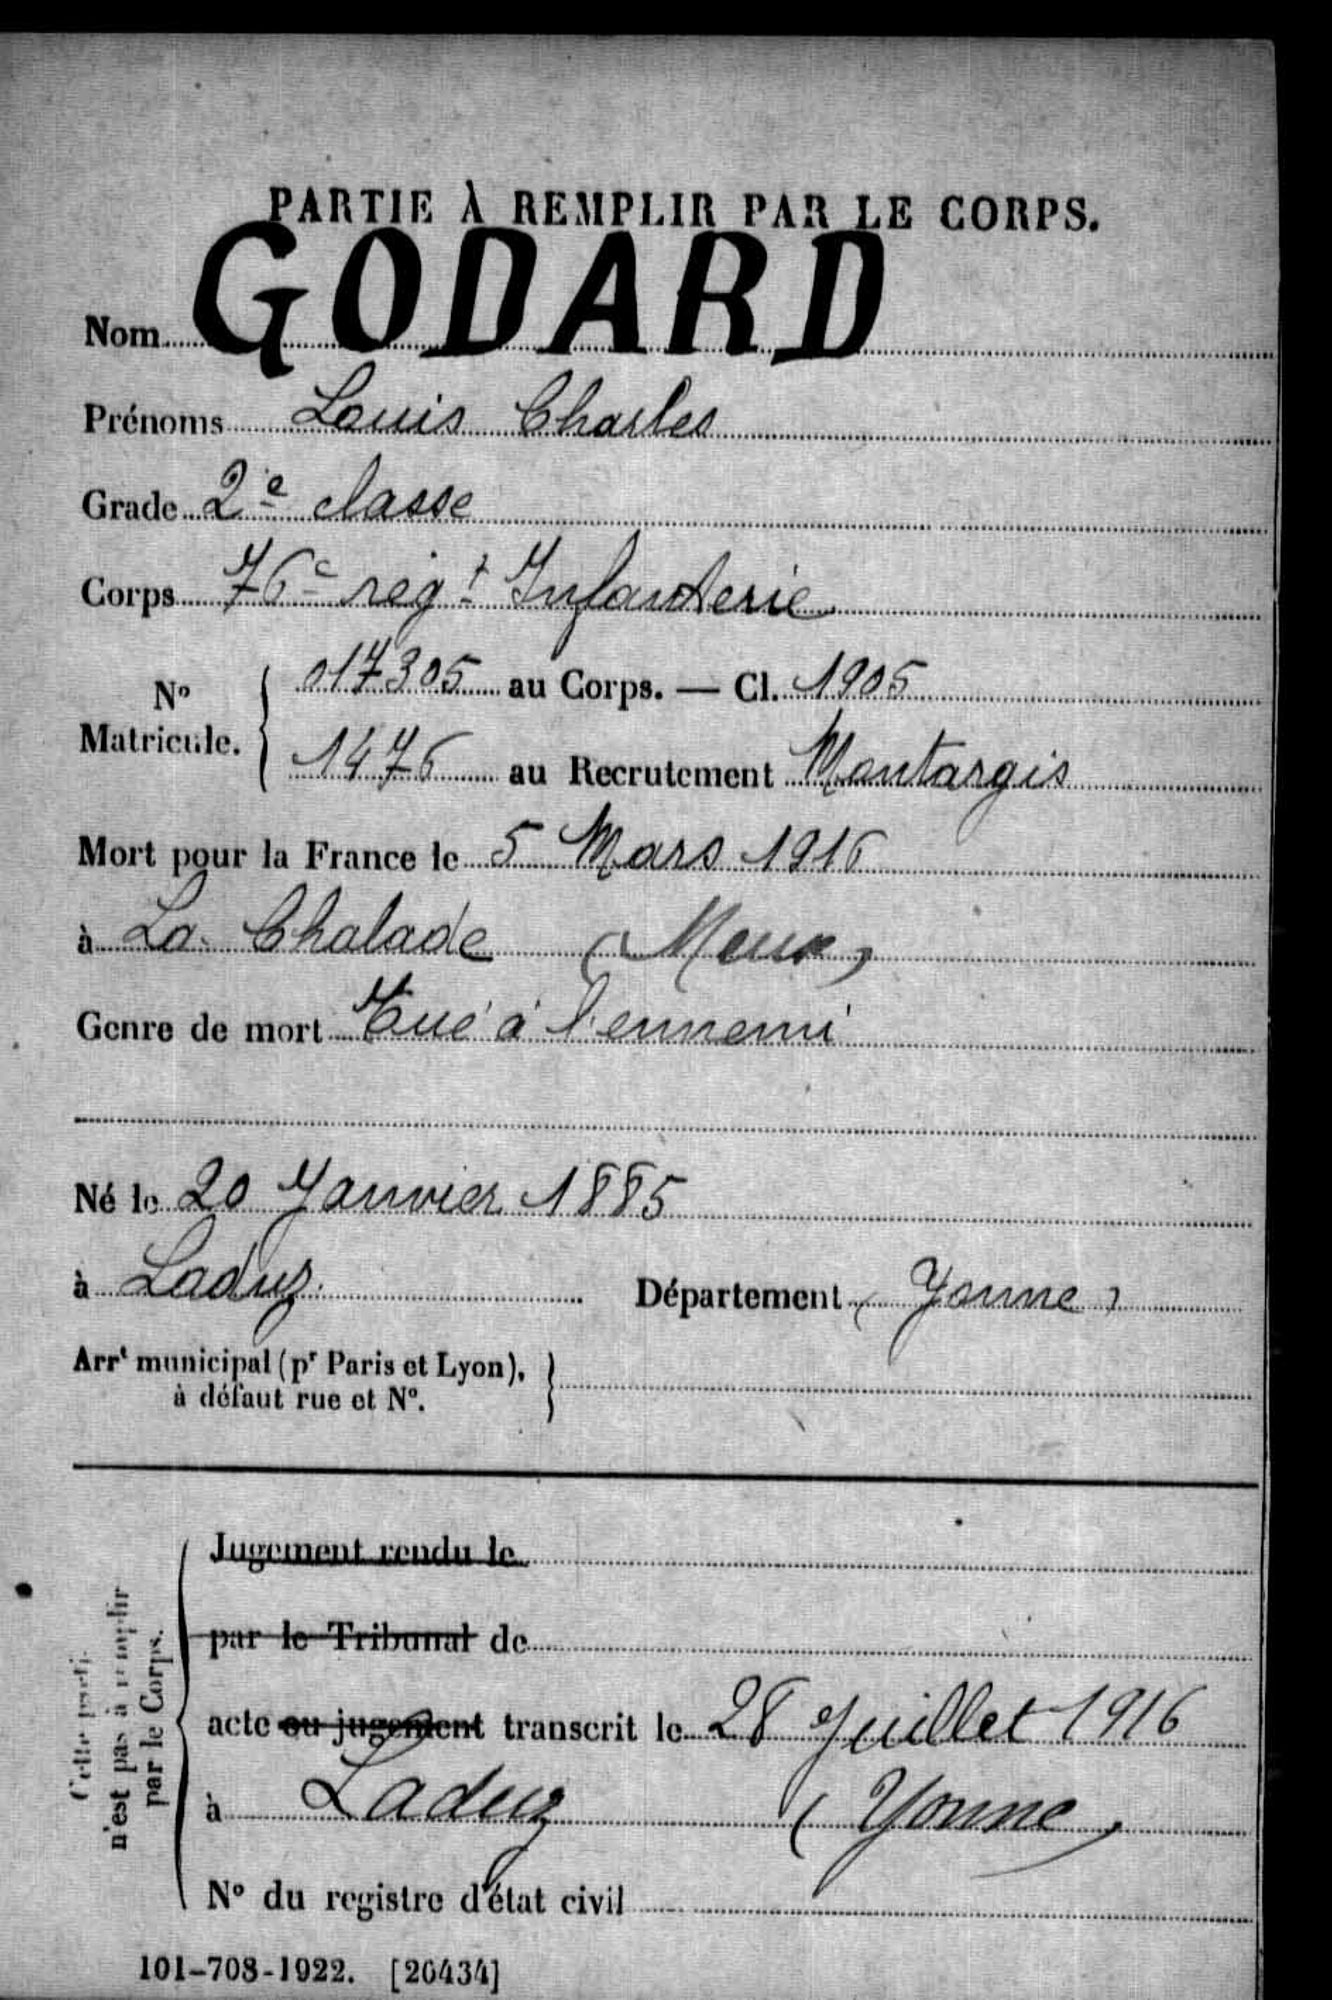 PARTIE À REMPLIR PAR LE CORPS.
Nom GODARD
Prénoms Louis Charles
Grade 2e classe
Corps 76e régt Infanterie
No Matricule. { 017305 au Corps. — Cl. 1905
1476 au Recrutement Montargis
Mort pour la France le 5 Mars 1916
à La Chalade (Meuse)
Genre de mort Tué à l'ennemi
Né le 20 Janvier 1885
à Laduz Département (Yonne)
Arrt municipal (pr Paris et Lyon), }
à défaut rue et No.
Cette partie
n'est pas à remplir
par le Corps.
Jugement rendu le
par le Tribunal de
acte ou jugement transcrit le 28 Juillet 1916
à Laduz (Yonne)
No du registre d'état civil
101-708-1922. [26434]